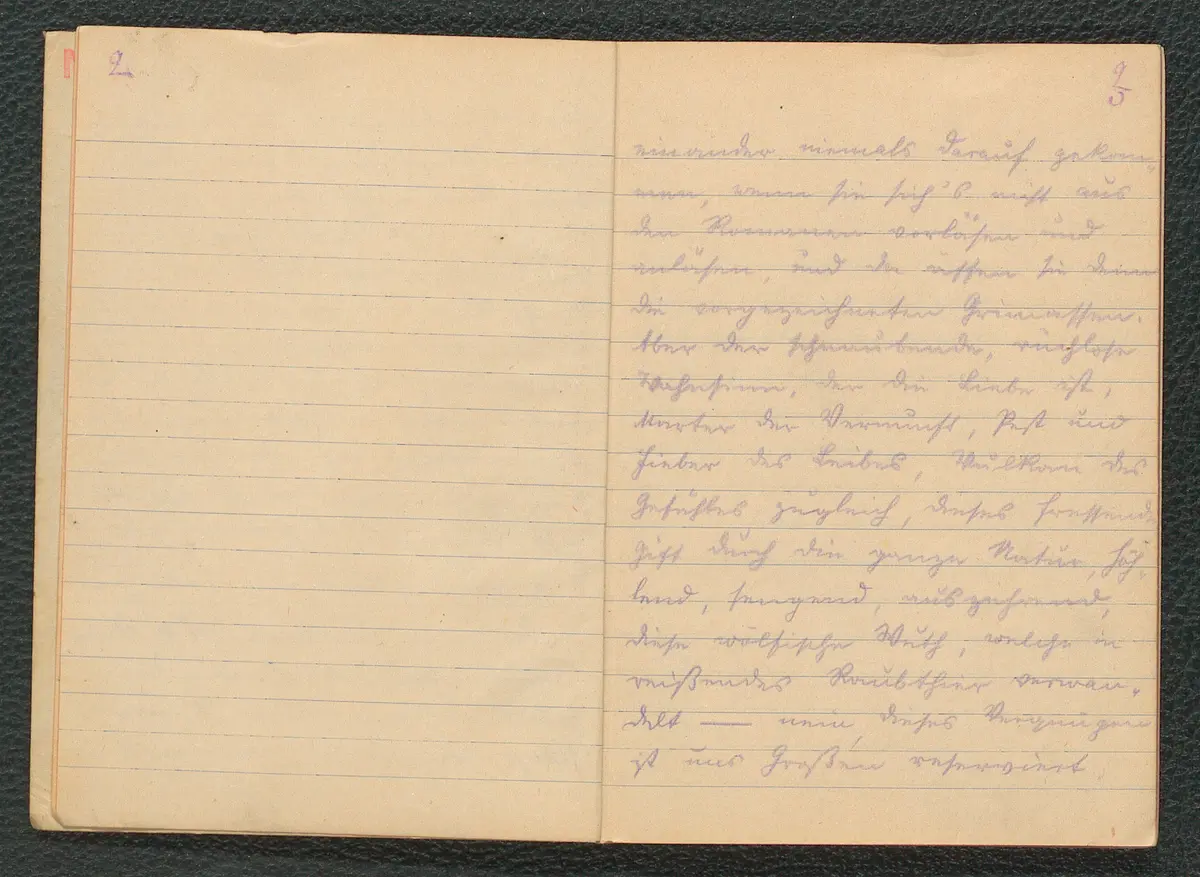 2
einander niemals darauf gekom-
men, wenn sie sich's nicht aus
den Romanen vorläsen und
anläsen, und da äffen sie denn
die vorgezeichneten Grimassen.
Aber der schnaubende, ruchlose
Wahnsinn, der die Liebe ist,
Marter der Vernunft, Pest und
Fieber des Leibes, Vulkan des
Gefühles zugleich, dieses fressende
Gift durch die ganze Natur, höh-
lend, sengend, auszehrend,
diese wölfische Wuth, welche in
reißendes Raubthier verwan-
delt — nein, dieses Vergnügen
ist uns Großen reserviert